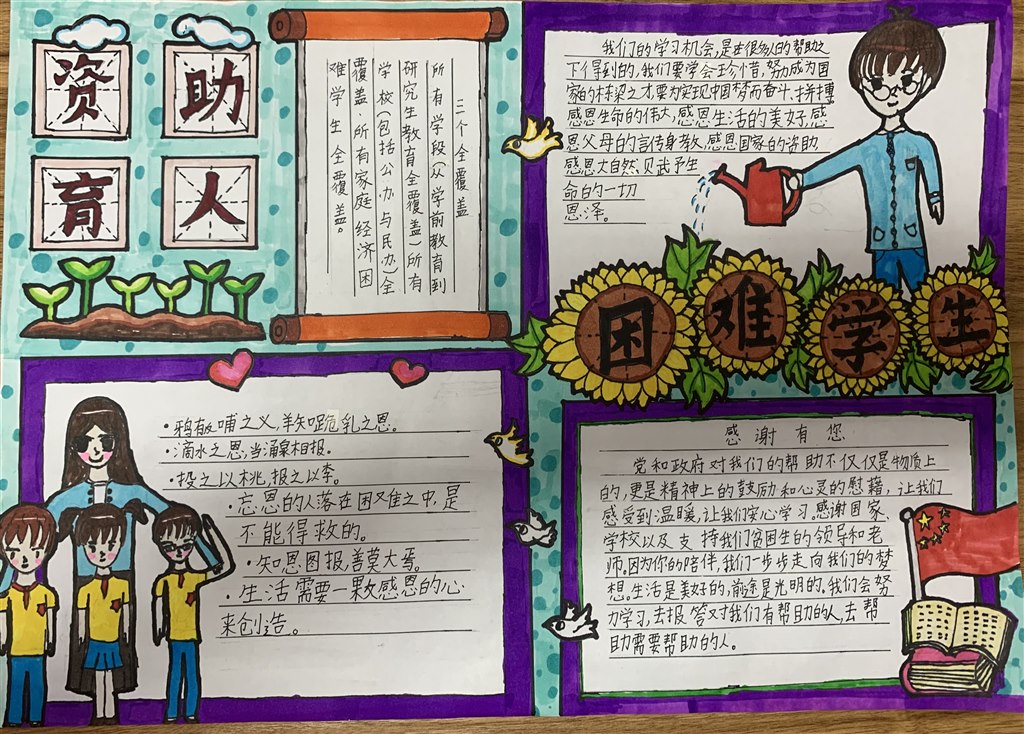 资助
育人
三个全覆盖
所有学段(从学前教育到
研究生教育全覆盖)所有
学校(包括公办与民办)全
覆盖.所有家庭经济困
难学生全覆盖。
我们的学习机会,是在很多人的帮助之
下得到的,我们要学会珍惜,努力成为国
家的栋梁之才,要为实现中国梦而奋斗.拼搏
感恩生命的伟大,感恩生活的美好,感
恩父母的言传身教,感恩国家的资助,
感恩大自然.贝武予生
命的一切
恩泽。
困难学生
·鸦有反哺之义,羊知跪乳之恩。
·滴水之恩,当涌泉相报。
·投之以桃,报之以李。
·忘恩的人落在困难之中,是
不能得救的。
·知恩图报,善莫大焉。
·生活需要一颗感恩的心
来创造。
感谢有您
党和政府对我们的帮助不仅仅是物质上
的,更是精神上的鼓励和心灵的慰藉,让我们
感受到温暖,让我们安心学习.感谢国家、
学校以及支持我们贫困生的领导和老
师,因为你的陪伴,我们一步步走向我们的梦
想.生活是美好的,前途是光明的.我们会努
力学习,去报答对我们有帮助的人,去帮
助需要帮助的人。